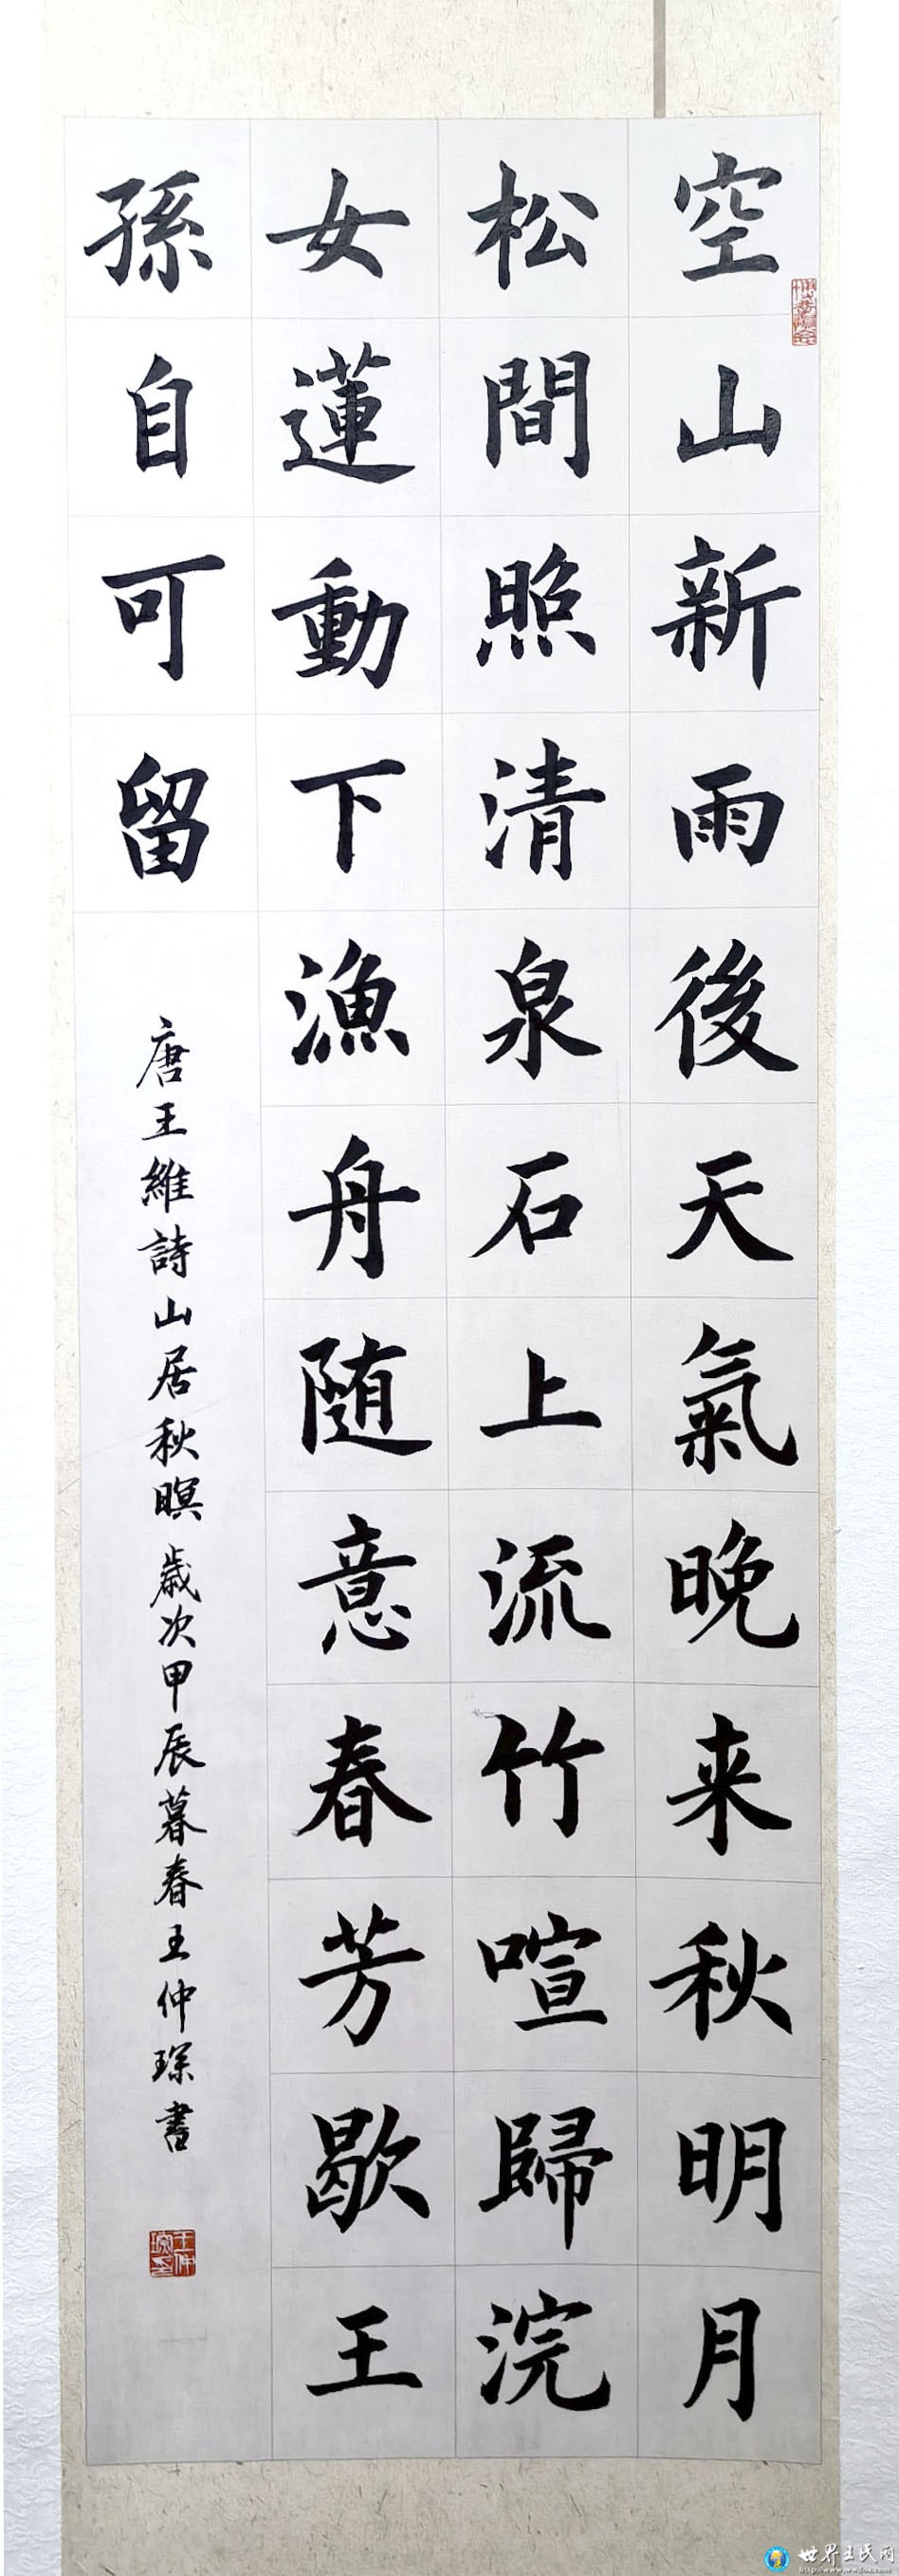 空山新雨後天氣晚来秋明月
松間照清泉石上流竹喧歸浣
女蓮動下漁舟随意春芳歇王
孫自可留
唐王維詩山居秋暝歲次甲辰暮春王仲琛書
世界王氏网